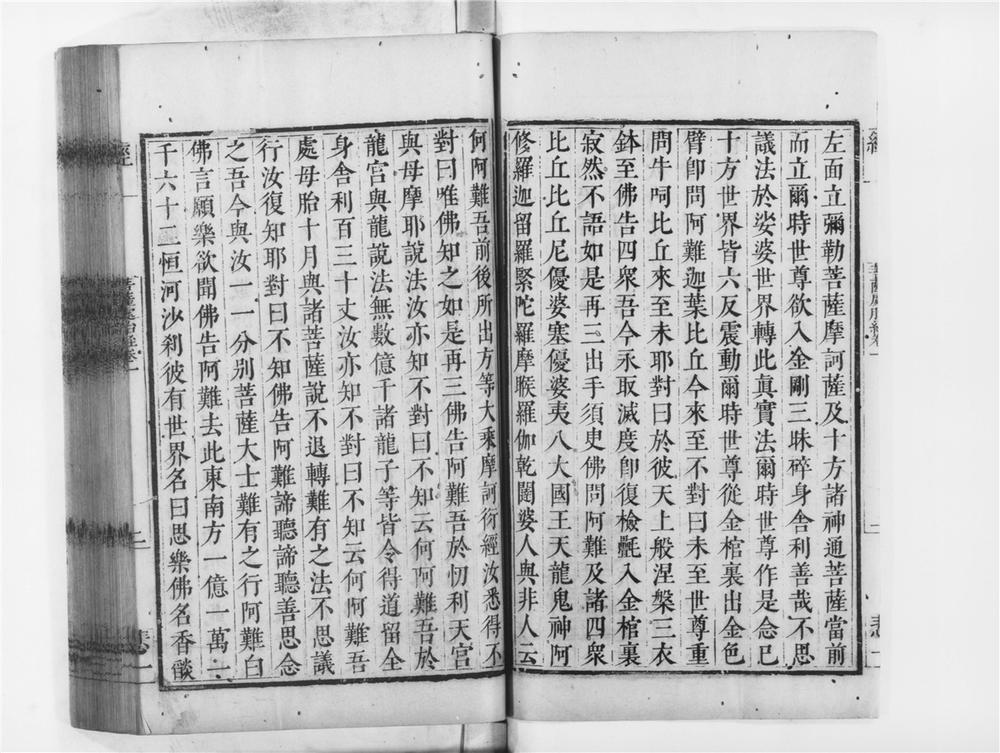 左面立彌勒菩薩摩訶薩及十方諸神通菩薩當前
而立爾時世尊欲入金剛三昧碎身舍利善哉不思
議法於娑婆世界轉此真實法爾時世尊作是念已
十方世界皆六反震動爾時世尊從金棺裏出金色
臂卽問阿難迦葉比丘今來至不對曰未至世尊重
問牛呞比丘來至未耶對曰於彼天上般涅槃三衣
鉢至佛告四衆吾今永取滅度卽復檢㲲入金棺裏
寂然不語如是再三出手須臾佛問阿難及諸四衆
比丘比丘尼優婆塞優婆夷八大國王天龍鬼神阿
修羅迦留羅緊陀羅摩睺羅伽乾闥婆人與非人云
何阿難吾前後所出方等大乘摩訶衍經汝悉得不
對曰唯佛知之如是再三佛告阿難吾於忉利天宮
與母摩耶說法汝亦知不對曰不知云何阿難吾於
龍宮與龍說法無數億千諸龍子等皆令得道留全
身舍利百三十丈汝亦知不對曰不知云何阿難吾
處母胎十月與諸菩薩說不退轉難有之法不思議
行汝復知耶對曰不知佛告阿難諦聽諦聽善思念
之吾今與汝一一分別菩薩大士難有之行阿難白
佛言願樂欲聞佛告阿難去此東南方一億一萬一
千六十二恒河沙刹彼有世界名曰思樂佛名香燄